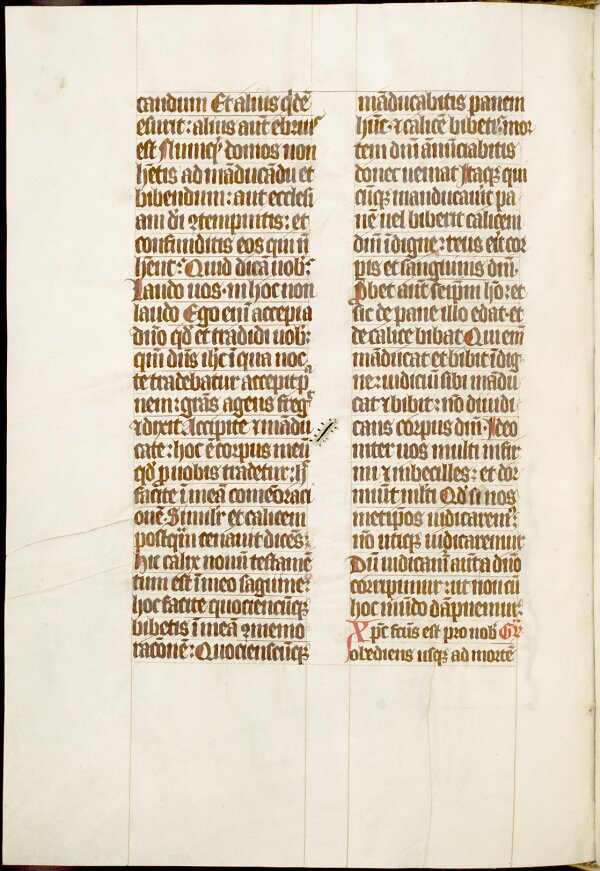 candum Et alius q̇dē
esurit: alius aūt ebrius
est Nūmq̇ domos non
hētis ad māducādū et
bibendum: aut ecclesi
am dī ꝯtempnitis: et
confunditis eos qui n̄
hēnt: Quid dicā uob:
Laudo uos· in hoc non
laudo Ego em̄ accepi a
dn̄o qd̄ et tradidi uob:
qm̄ dn̄s ihc̄ ī qua noc
te tradebatur accepit p̄
nem: grās agens freg̾
⁊ dixit Accipite ⁊ mādu
cate: hoc ē corpus meū
qd̄ p̱ uobis tradetur: h̾
facite ī meā comēoraci
onē Simil̾r et calicem
postq̄m cenauit dicēs:
hic calix nouū testamē
tum est ī meo sāguine:
hoc facite quociēscūqꝫ
bibetis ī meā ꝯmemo
racōne: Quociensciūqꝫ
māducabitis panem
hūc· ⁊ calicē bibetis mor
tem dn̄i ānūciabitis
donec ueniat Itaqꝫ qui
cūqꝫ manducauīt pa
nē uel biberit calicem
dn̄i īdigne: reus eīt cor
pis et sanguinis dn̄i·
Pbet aūt seip̄m hō: et
sic de pane illo edat· et
de calice bibat Qui em̄
māducat et bibit īdig
ne: iudiciū sibi mādu
cat ⁊ bibit: nō diiudi
cans corpus dn̄i· Ideo
inter uos multi infir
mi ⁊ inbecilles: et dor
miūt ml̄ti Qd̄ si nos
metip̄os iudicarem̾:
nō utiqꝫ iudicaremur
Dū iudicam̾ aūt a dn̄o
corripimur: ut non cū
hoc mūdo dāpnemur:
Xp̄c fc̄us est pro nob̄ Gr̄
obediens usqꝫ ad mortē